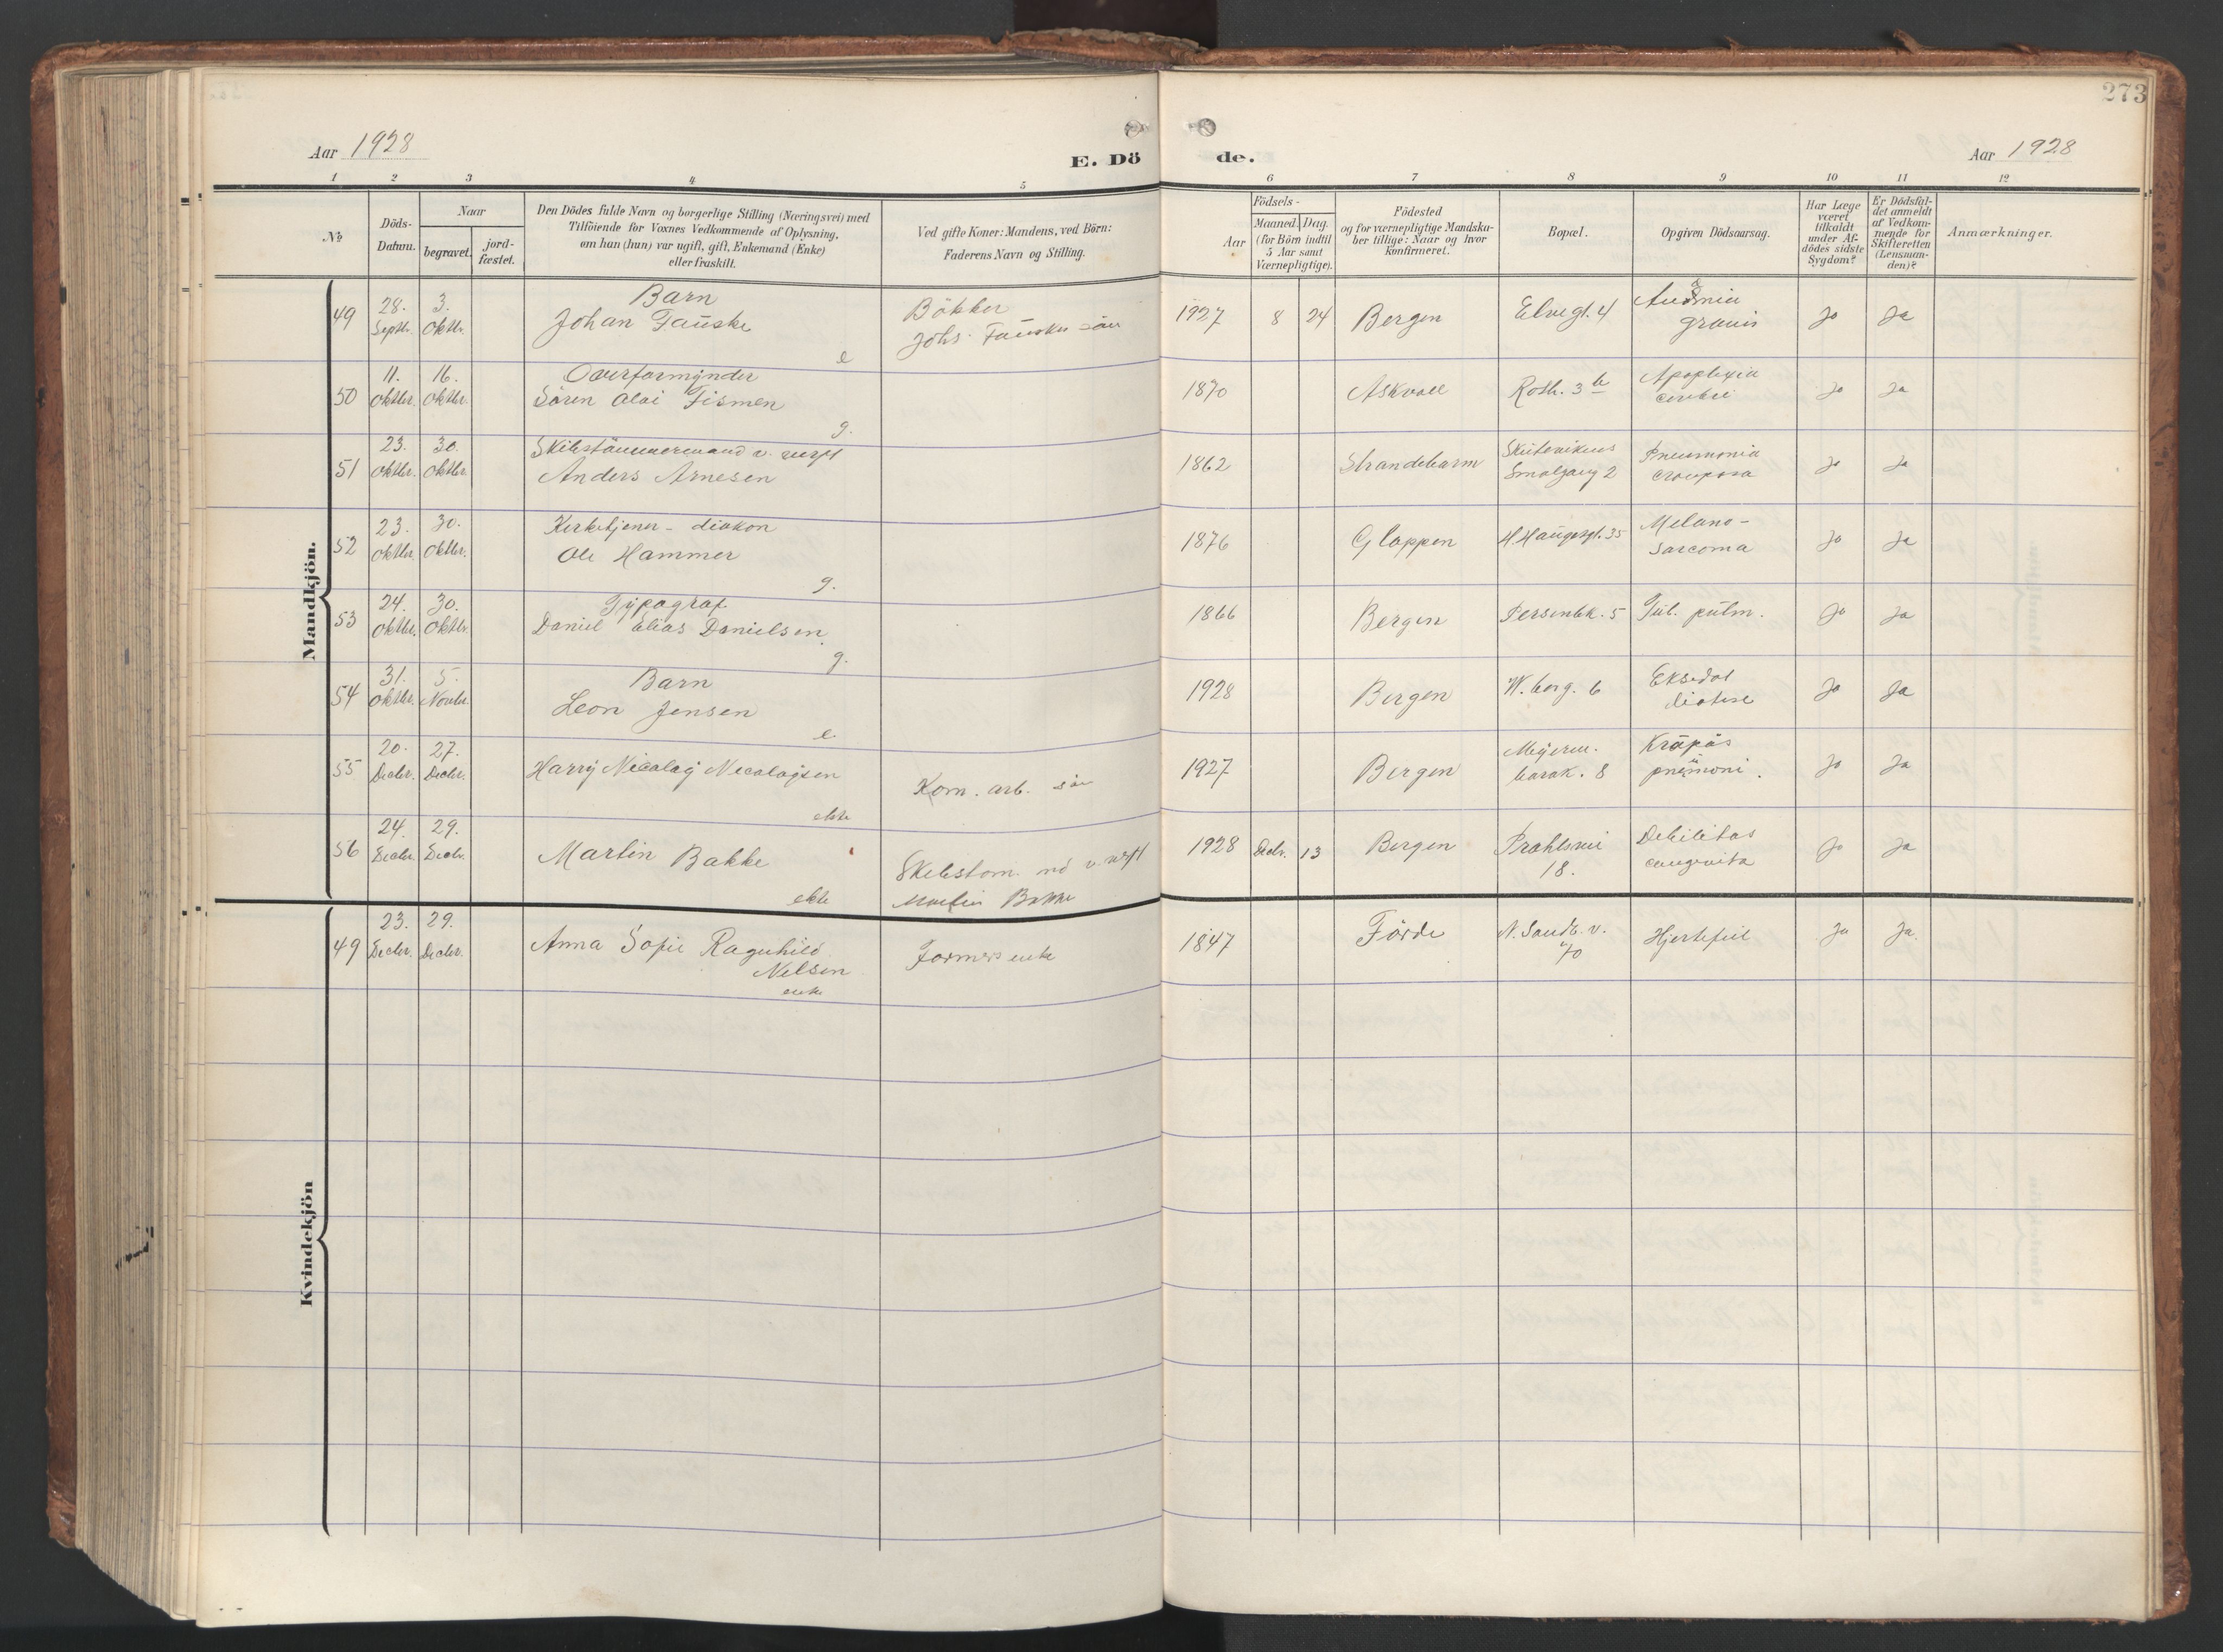 273
Aar 1928
E. Dö
de.
Aar 1928
1 2 3 4 5 6 7 8 9 10 11 12
№
Döds-
Datum.
Naar
begravet.
jord-
fæstet.
Den Dödes fulde Navn og borgerlige Stilling (Næringsvei) med
Tilföiende for Voxnes Vedkommende af Oplysning,
om han (hun) var ugift, gift, Enkemand (Enke)
eller fraskilt.
Ved gifte Koner: Mandens, ved Börn:
Faderens Navn og Stilling.
Födsels-
Aar
Maaned. Dag.
(for Börn indtil
5 Aar samt
Værnepligtige).
Födested
og for værnepligtige Mandska-
ber tillige: Naar og hvor
konfirmeret.
Bopæl.
Opgiven Dödsaarsag.
Har Læge
været
tilkaldt
under Af-
dödes sidste
Sygdom?
Er Dödsfal-
det anmeldt
af Vedkom-
mende for
Skifteretten
(Lensman-
den)?
Anmærkninger.
Mandkjön.
49 28. Septbr. 3. Oktbr. Barn
Johan Fauske
e
Bökker
Johs. Fauskes sön
1927 8 24 Bergen Elvegt. 4
gravis
Ja Ja
50 11. Oktbr. 16. Oktbr. Overformynder
Sören Olai Tismen
g.
1870 Askvoll Roth. 3 b Apoplexia
cerebri
Ja Ja
51 23. Oktbr. 30. Oktbr. Skibstömmermand v. verft
Anders Arnesen
1862 Strandebarm Skutevikens
Smalgang 2
Pneumonia
crouposa
Ja Ja
52 23. Oktbr. 30. Oktbr. Kirketjener - diakon
Ole Hammer
g.
1876 Gloppen H. Haugesgt. 35 Melano-
sarcoma
Ja Ja
53 24. Oktbr. 30. Oktbr. Typograf
Daniel Elias Danielsen
g.
1866 Bergen Persenbk. 5 Tub. pulm.
Ja Ja
54 31. Oktbr. 5. Novbr. Barn
Leon Jensen
e.
1928 Bergen W. berg. 6
Ja Ja
55 20. Decbr. 27. Decbr. Harry Nicolay Nicolaysen
ekte
Kom. arb. sön
1927 Bergen
barak. 8
Krupøs
pneumoni.
Ja Ja
56 24. Decbr. 29. Decbr. Martin Bakke
ekte
Skibstöm. md v. verft
Martin Bakke
1928 Decbr. 13 Bergen Prahlsvei
18.
Debilitas
congenita
Ja Ja
Kvindekjön
49 23. Decbr. 29. Decbr. Anna Sofie Ragnhild
Nilsen
enke
Formers enke
1847 Förde N. Sandv. v.
70
Hjertefeil
Ja Ja.